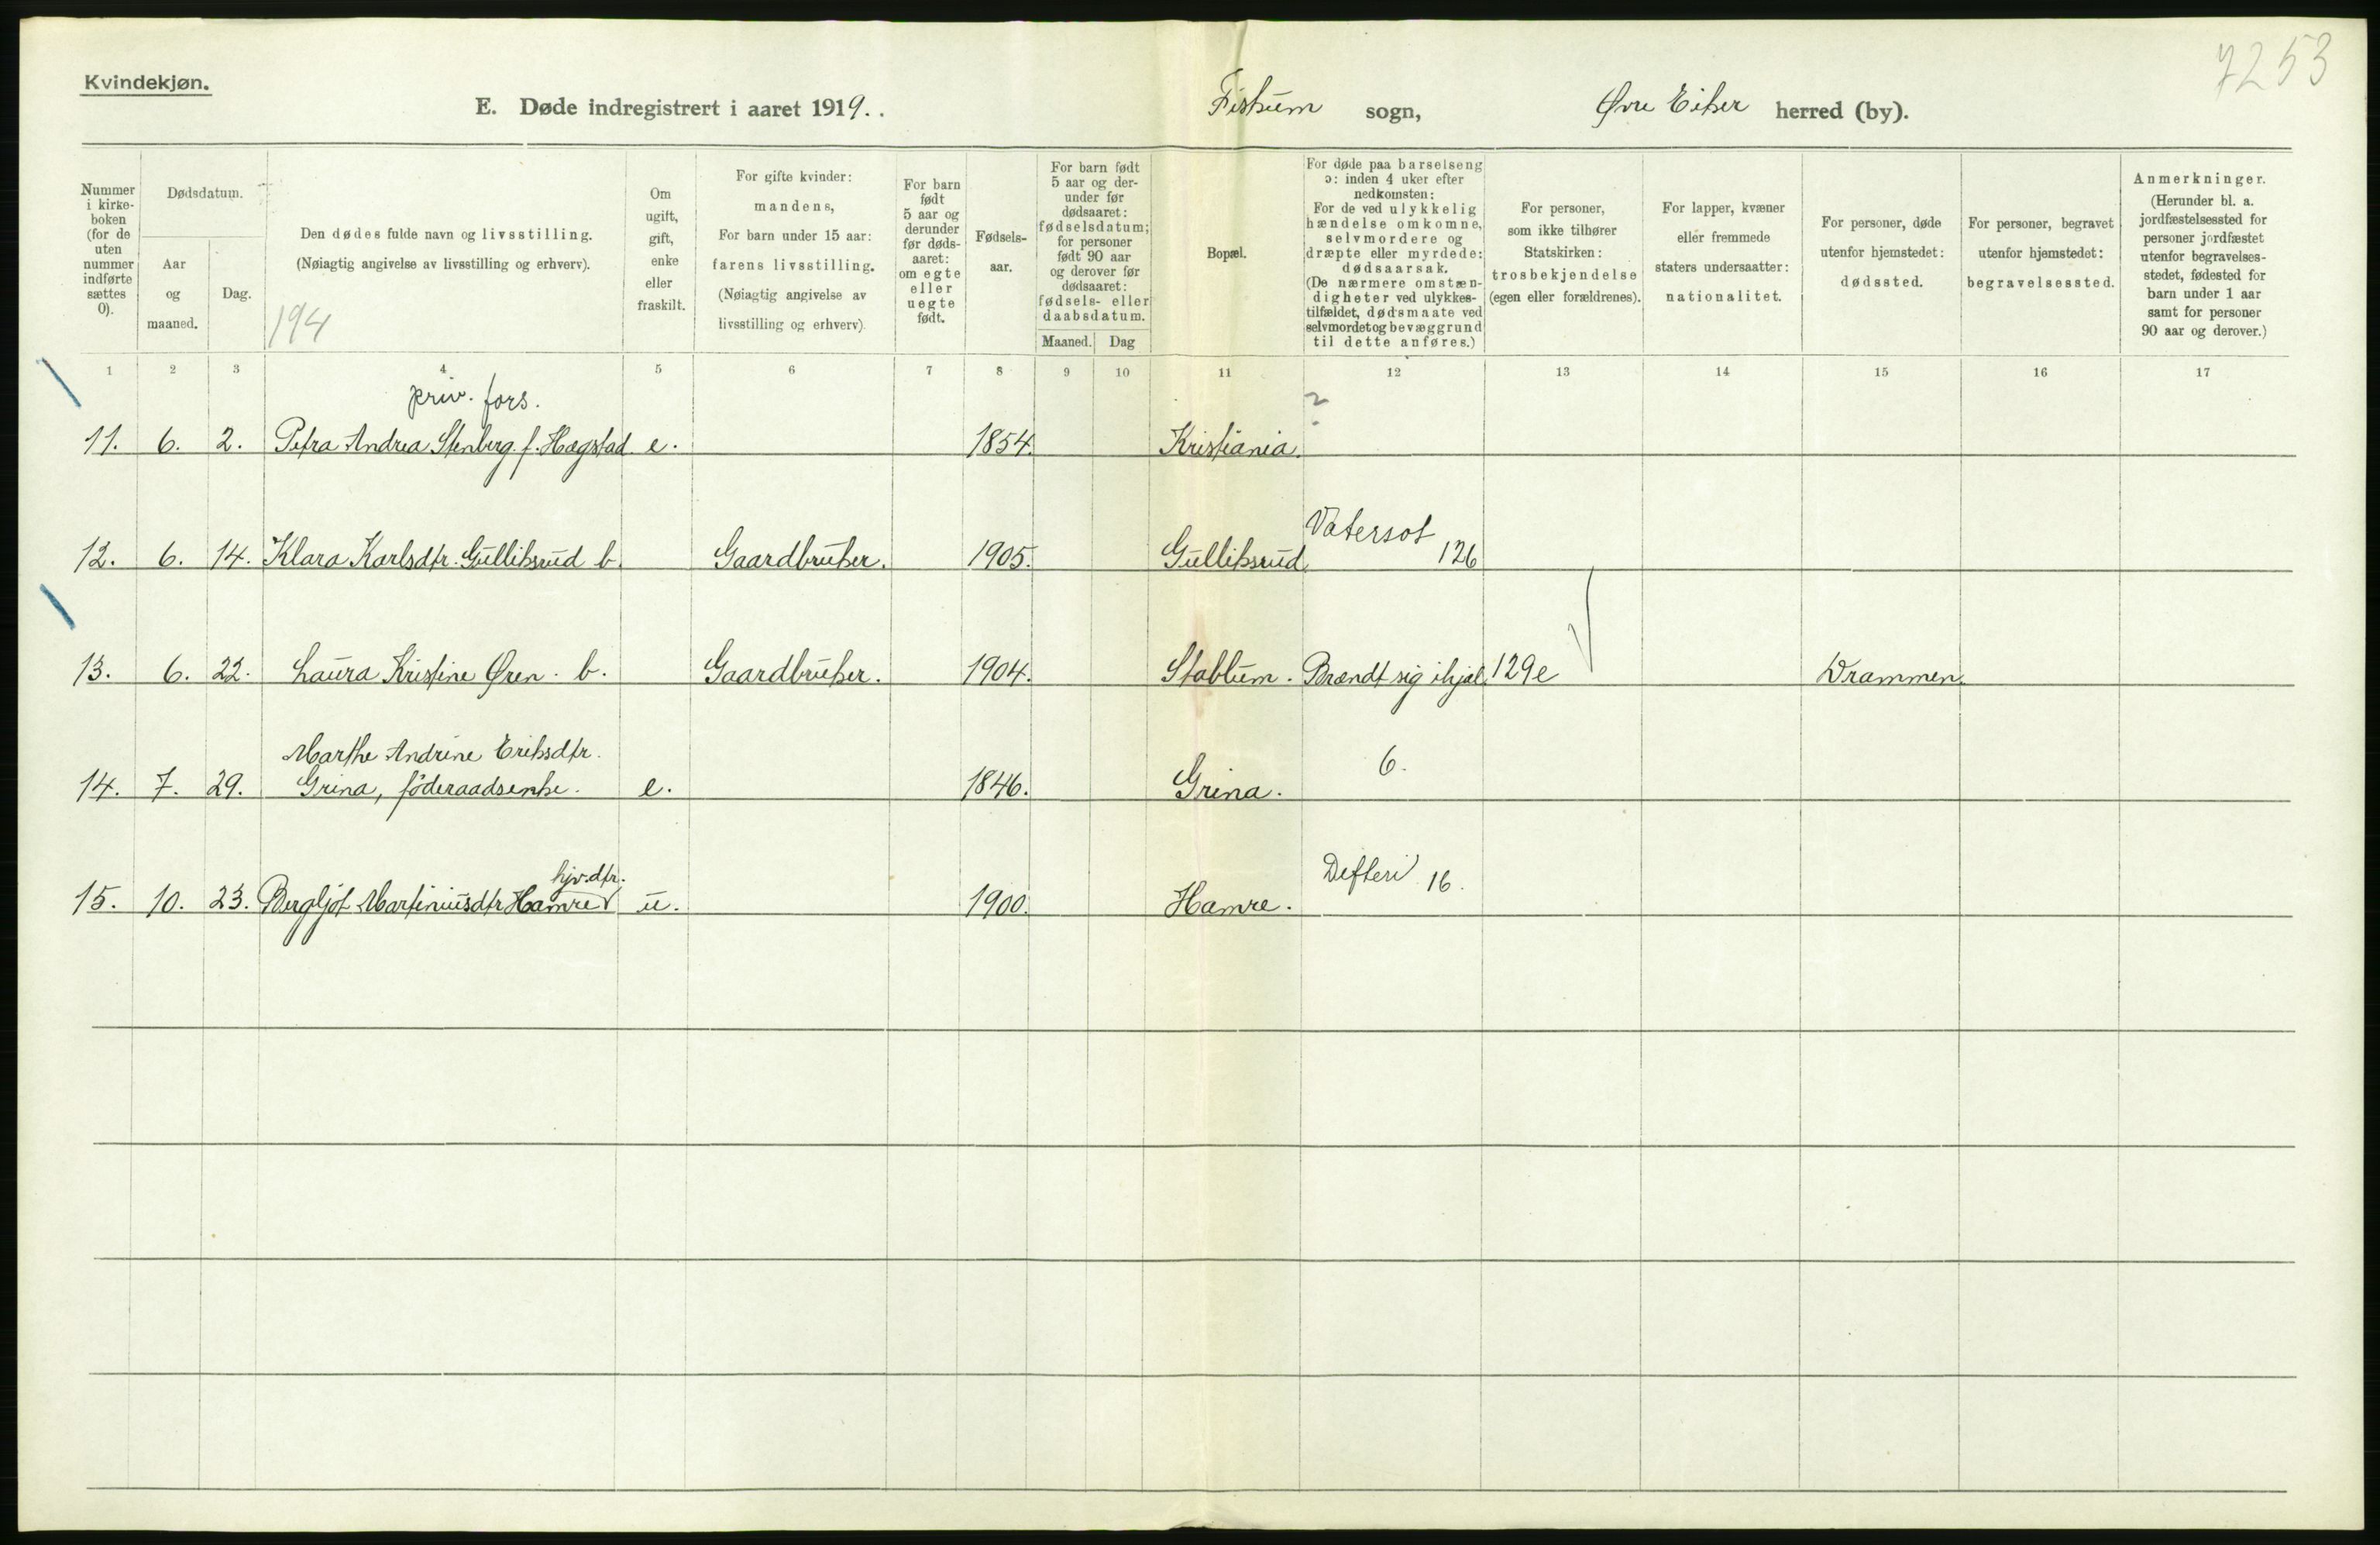 7253
Kvindekjøn.
E. Døde indregistrert i aaret 1919. .
Fiskum sogn, Øvre Eiker herred (by).
Nummer
i kirke-
boken
(for de
uten
nummer
indførte
sættes
0).
Dødsdatum.
Aar
og
maaned.
Dag.
Den dødes fulde navn og livsstilling.
(Nøiagtig angivelse av livsstilling og erhverv).
194
Om
ugift,
gift,
enke
eller
fraskilt.
For gifte kvinder:
mandens,
For barn under 15 aar:
farens livsstilling.
(Nøiagtig angivelse av
livsstilling og erhverv)
For barn
født
5 aar og
derunder
før døds-
aaret:
om egte
eller
uegte
født.
Fødsels-
aar.
For barn født
5 aar og der-
under før
dødsaaret:
fødselsdatum;
for personer
født 90 aar
og derover før
dødsaaret:
fødsels- eller
daabsdatum.
Maaned. Dag
Bopæl.
For døde paa barselseng
ɔ: inden 4 uker efter
nedkomsten:
For de ved ulykkelig
hændelse omkomne,
selvmordere og
dræpte eller myrdede:
dødsaarsak.
(De nærmere omstæn-
digheter ved ulykkes-
tilfældet, dødsmaate ved
selvmordet og bevæggrund
til dette anføres.)
For personer,
som ikke tilhører
Statskirken:
trosbekjendelse
(egen eller forældrenes).
For lapper, kvæner
eller fremmede
staters undersaatter:
nationalitet.
For personer, døde
utenfor hjemstedet:
dødssted.
For personer, begravet
utenfor hjemstedet:
begravelsessted.
Anmerkninger.
(Herunder bl. a.
jordfæstelsessted for
personer jordfæstet
utenfor begravelses-
stedet, fødested for
barn under 1 aar
samt for personer
90 aar og derover.)
1 2 3 4 5 6 7 8 9 10 11 12 13 14 15 16 17
priv. fors. ?
11. 6. 2. Petra Andrea Stenberg f. Hagstad e. 1854. Kristiania.
Vatersot
12. 6. 14. Klara Karlsdtr. Gulliksrud b. Gaardbruker. 1905. Gulliksrud. 126
13. 6. 22. Laura Kristine Øren. b. Gaardbruker. 1904. Stablum. Brændt sig ihjel. 129e Drammen.
Marthe Andrine Eriksdtr. 6.
14. 7. 29. Grina, föderaadsenke. e. 1846. Grina.
hjv. dtr. Difteri 16.
15. 10. 23. Bergljot Martiniusdtr Hamre u. 1900. Hamre.